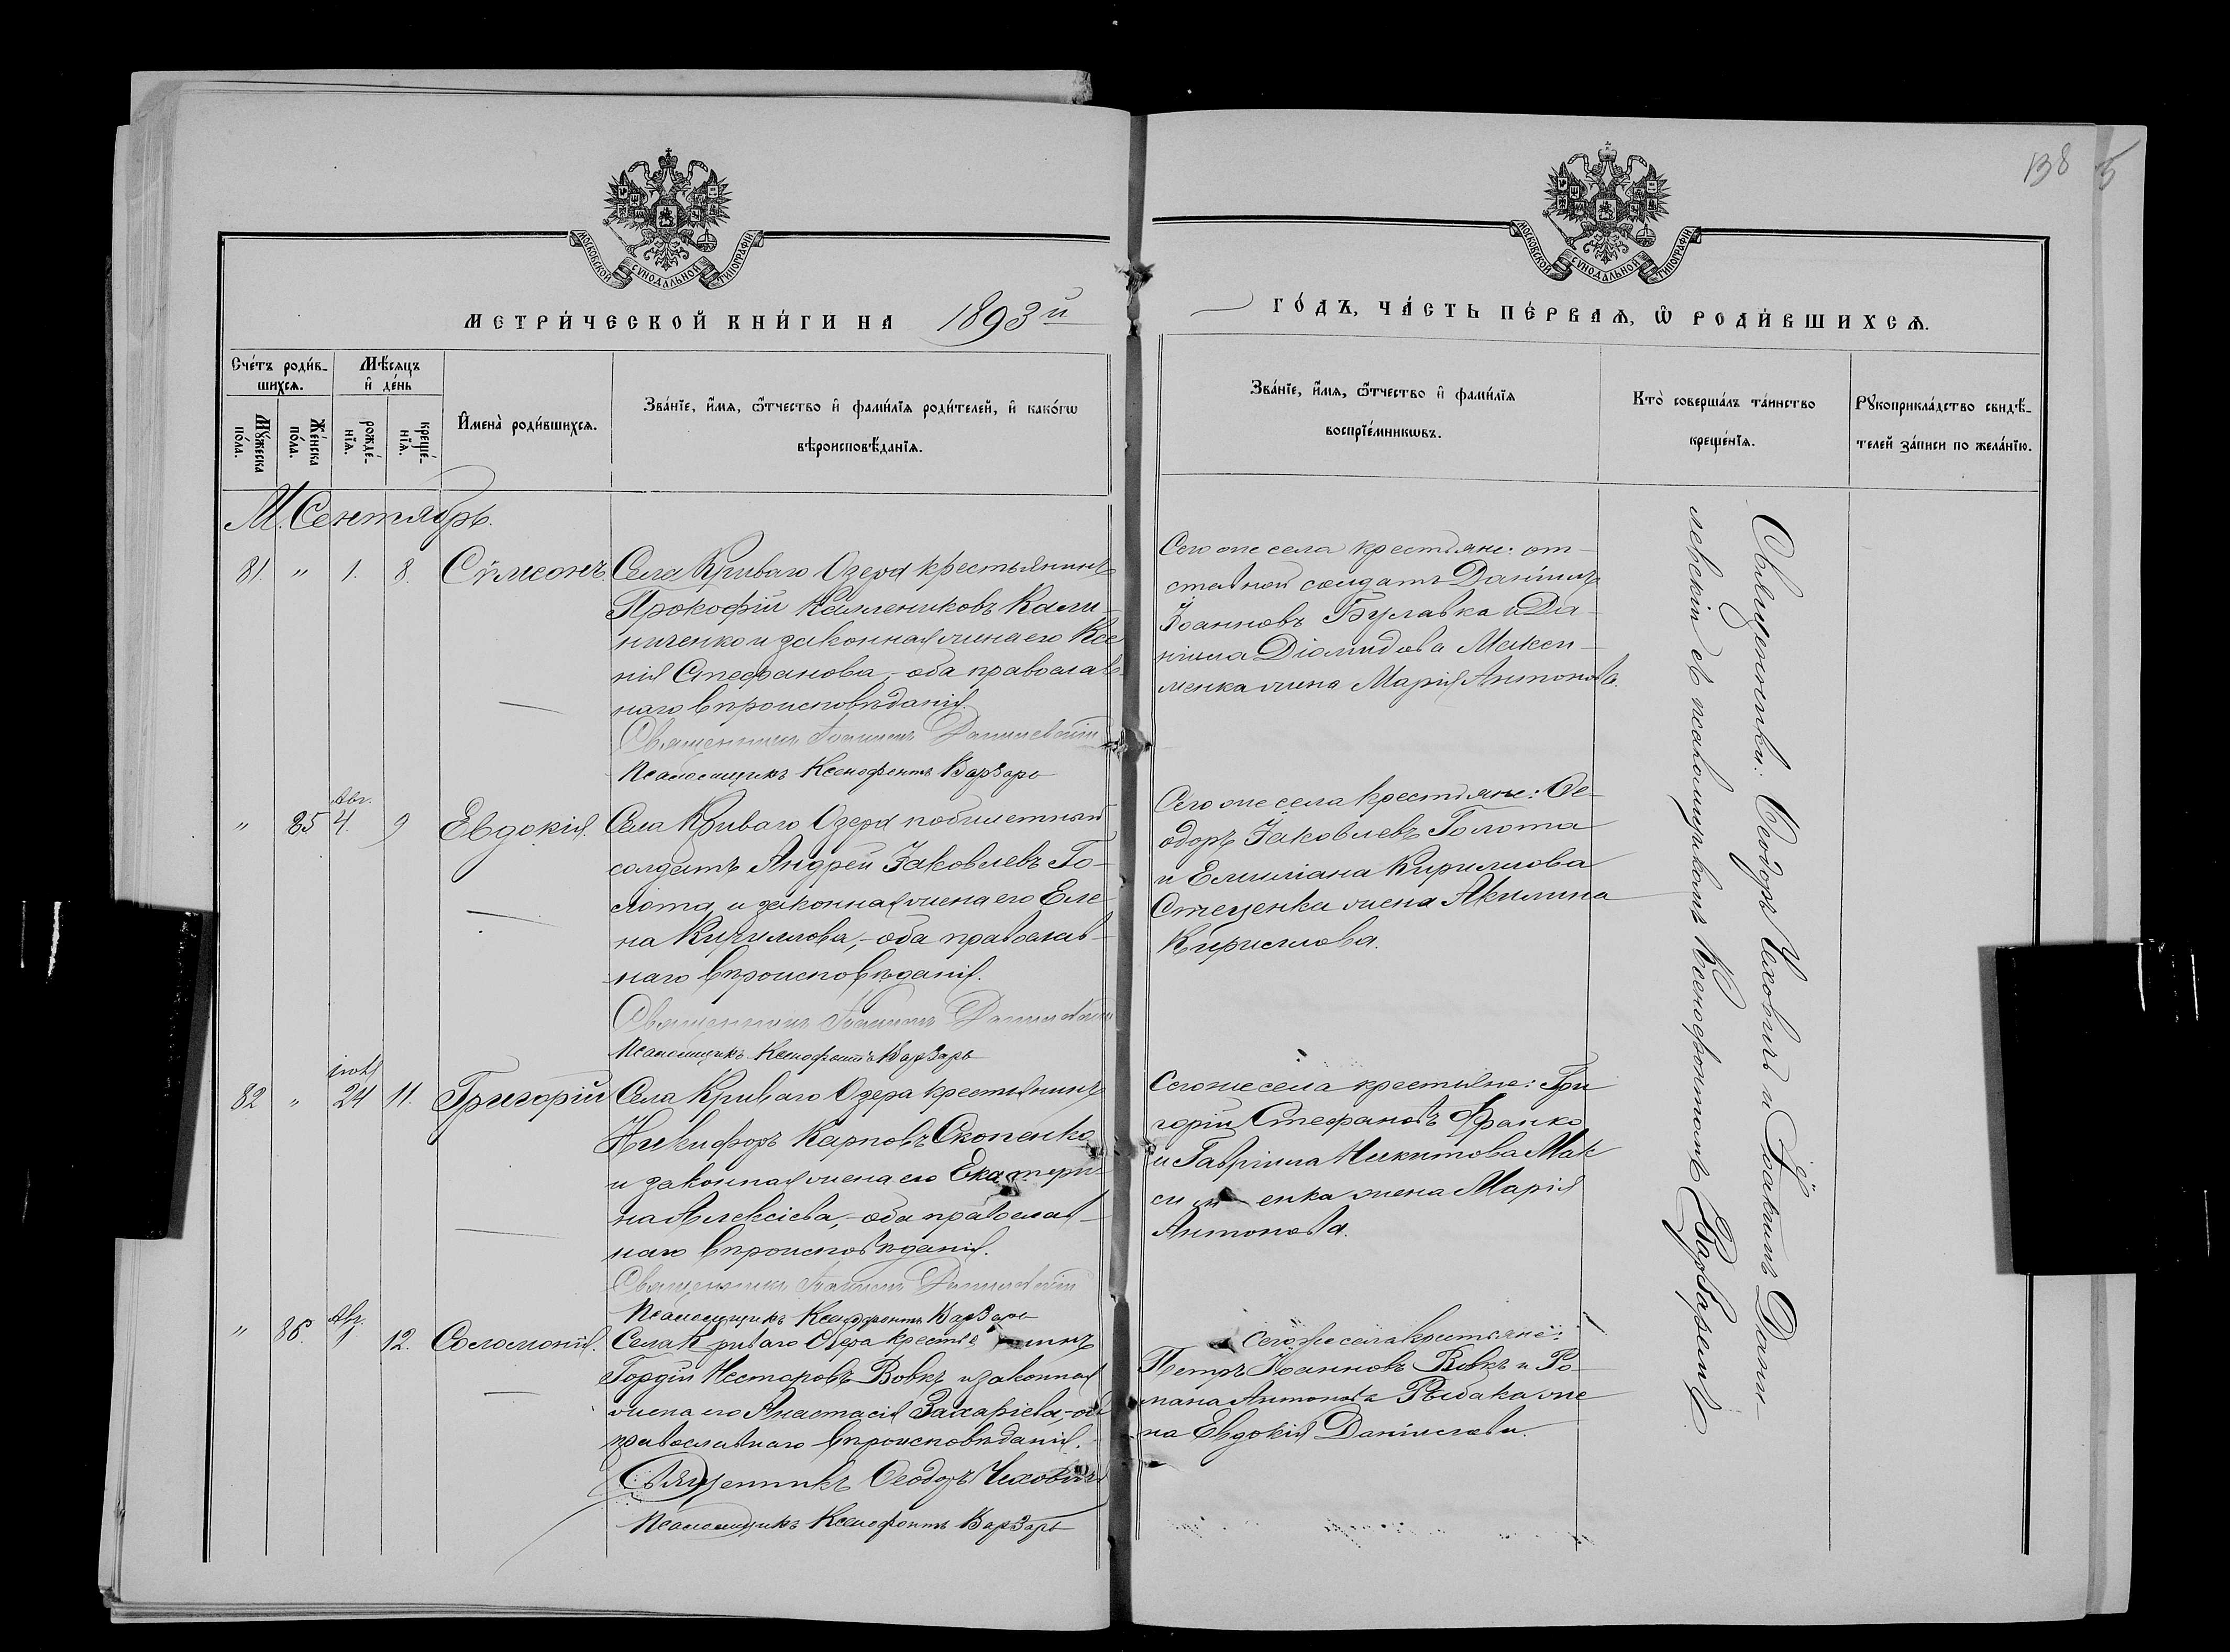 138
МОСКОВСКОЙ СѴНОДАЛЬНОЙ ТИПОГРАФІИ
МОСКОВСКОЙ СѴНОДАЛЬНОЙ ТИПОГРАФІИ
МЕТРИ́ЧЕСКОЙ КНИ́ГИ НА 1893й
ГО́ДЪ, ЧА́СТЬ ПЕ́РВАѦ, Ѡ҆ РОДИ́ВШИХСѦ.
Сче́тъ роди́в-
шихсѧ.
Мꙋ́жеска по́ла.
Же́нска по́ла.
Мѣ́сѧцъ и҆ де́нь
рожде́-
нїѧ.
креще́-
нїѧ.
И҆мена̀ роди́вшихсѧ.
Зва́нїе, и҆́мѧ, ѻ҆́тчество и҆ фами́лїѧ роди́телей, и҆ како́гѡ
вѣроисповѣ́данїѧ.
Зва́нїе, и҆́мѧ, ѻ҆́тчество и҆ фами́лїѧ
воспрїе́мникѡвъ.
Кто̀ соверша́лъ та́инство
креще́нїѧ.
Рꙋкоприкла́дство свидѣ́-
телей за́писи по жела́нїю.
М. Сентябрь.
81. " 1. 8. Сѵмеонъ.
Села Криваго Озера крестьянинъ
Прокофій Каллениковъ Кали-
ниченко и законная жена его Ксе
нія Стефанова, - оба православ-
наго вѣроисповѣданія.
Священникъ Іоакимъ Данилевскій
Псаломщикъ Ксенофонтъ Варзарь
Сего же села крестьяне: от-
ставной солдатъ Даніилъ
Іоанновъ Булавка и Да-
ніила Діомидова Максим-
менка жена Марія Антонова.
" 85 Авг. 4. 9 Евдокія.
Села Криваго Озера побилетный
солдатъ Андрей Іаковлевъ Го-
лота и законная жена его Еле-
на Кириллова, - оба православ-
наго вѣроисповѣданія.
Священникъ Іоакимъ Данилевскій
Псаломщикъ Ксенофонтъ Варзарь
Сего же села крестьяне: Ѳе-
одоръ Іаковлевъ Голота
и Емиліана Кириллова
Стеценка жена Акилина
Кириллова.
82 " іюля 24 11. Григорій
Села Криваго Озера крестьянинъ
Никифоръ Карповъ Скопенко
и законная жена его Екатери-
на Алексіева, - оба православ-
наго вѣроисповѣданія.
Священникъ Іоакимъ Данилевскій
Псаломщикъ Ксенофонтъ Варзарь
Сего же села крестьяне: Гри
горій Стефановъ Франко
и Гавріила Никитова Мак
сименка жена Марія
Антонова.
" 86. Авг. 1 12. Соломонія.
Села Криваго Озера крестьянинъ
Гордій Несторовъ Вовкъ и законная
жена его Анастасія Захаріева, - оба
православнаго вѣроисповѣданія.
Священникъ Ѳеодоръ Чеховичъ
Псаломщикъ Ксенофонтъ Варзарь
Сего же села крестьяне:
Петръ Іоанновъ Вовкъ и Ро-
мана Антонова Рыбака же
на Евдокія Даніилова.
Священники: Ѳеодоръ Чеховичъ и Іоакимъ Дани-
левскій съ псаломщикомъ Ксенофонтомъ Варзаремъ.